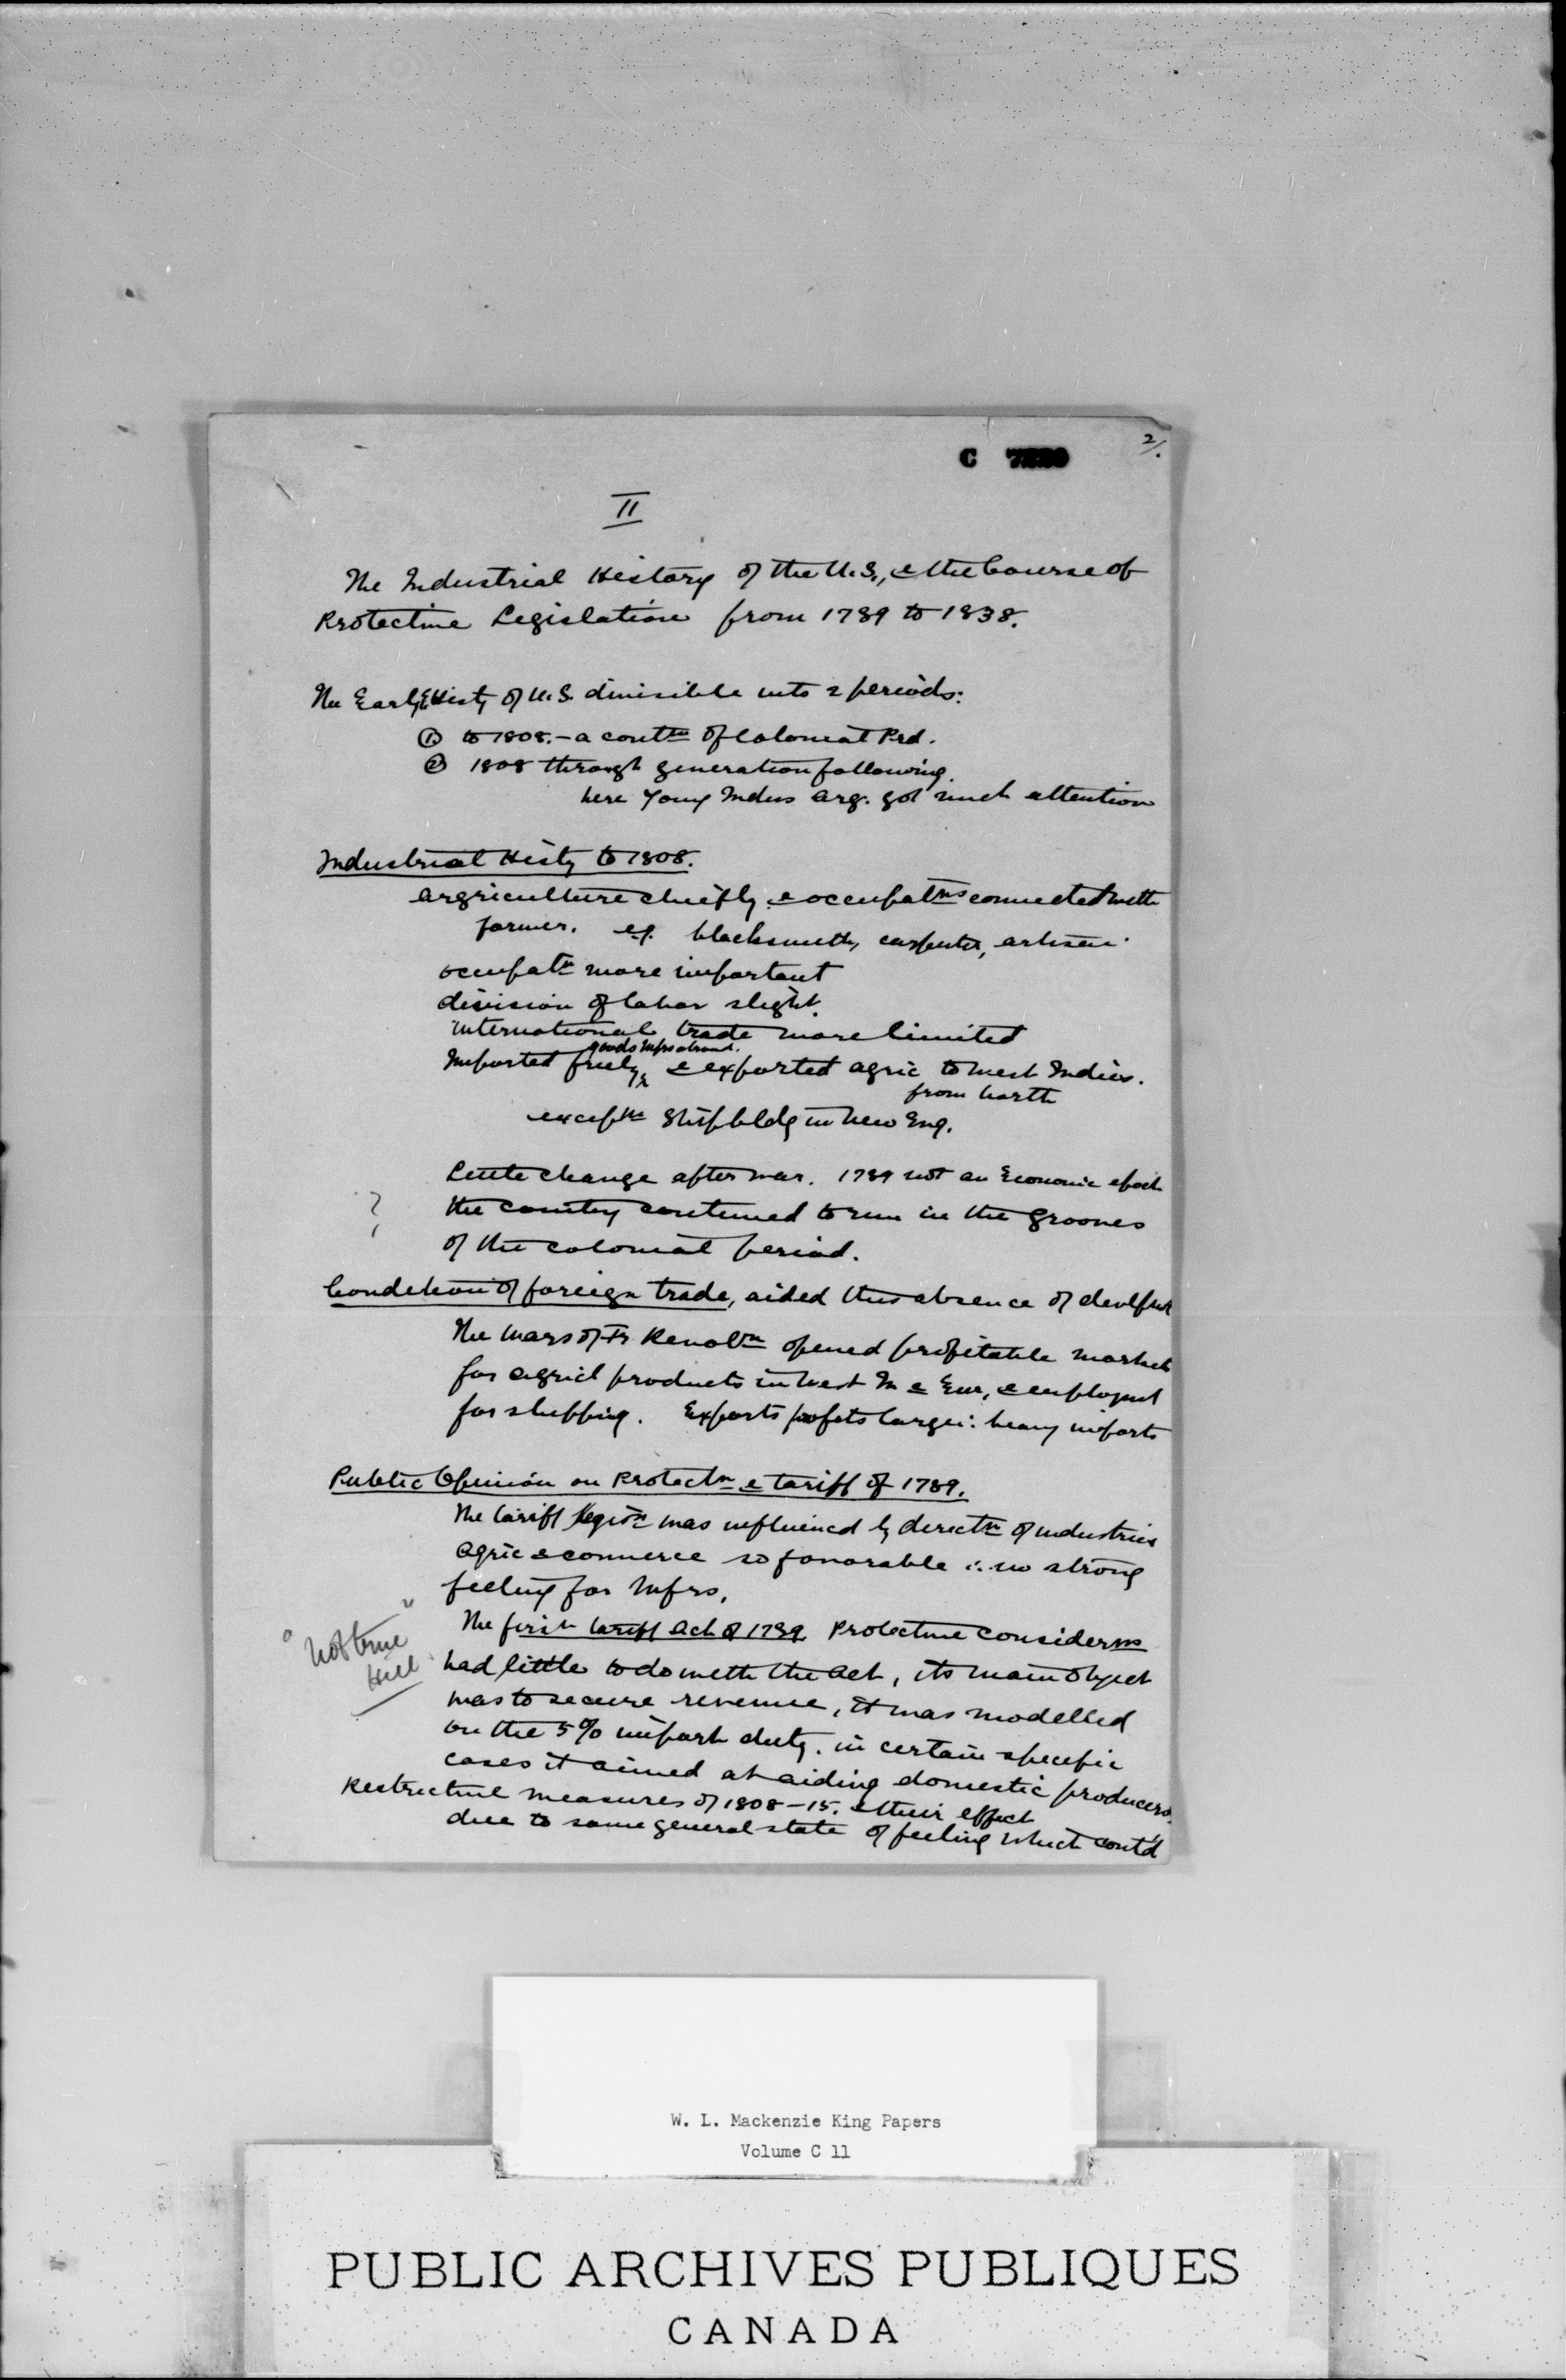 C 7220
2/.
II
The Industrial History of the U.S., & the Course of
Protective Legislation from 1789 to 1838.
The Early Histy of U.S. divisible into 2 periods:
① to 1808. – a contn of Colonial Prd.
② 1808 through generation following.
here Young Indus arg. got much attention
Industrial Histy to 1808.
Argriculture chiefly & occupatns connected with
former. eg. blacksmith, carpenter, artisan.
occupatn more important
division of labor slight.
international trade more limited
goods Mfrs abroad.
Imported freely, & exported agric to West Indies.
from North
exceptn Shipbldg in New Eng.
Little change after war. 1789 not an Economic epoch
? the country continued to run in the grooves
of the colonial period.
Condition of foreign trade, aided this absence of devlpmt
The Wars of Fr Revoltn opened profitable markets
for agricl products in West In & Eur, & employmt
for shipping. Exports profits large: heavy imports
Public Opinion on Protectn & tariff of 1789.
The tariff legisn was influenced by directn of industries
agric & commerce so favorable ∴ no strong
feeling for Mfrs.
The first tariff Act of 1789 Protective Considerns
"Not true"
Hill
had little to do with the Act, its main object
was to secure revenue, it was modelled
on the 5% import duty. in certain specific
cases it aimed at aiding domestic producers.
Restrictive measures of 1808–15. & their effect
due to same general state of feeling which cont'd
W. L. Mackenzie King Papers
Volume C 11
PUBLIC ARCHIVES PUBLIQUES
CANADA